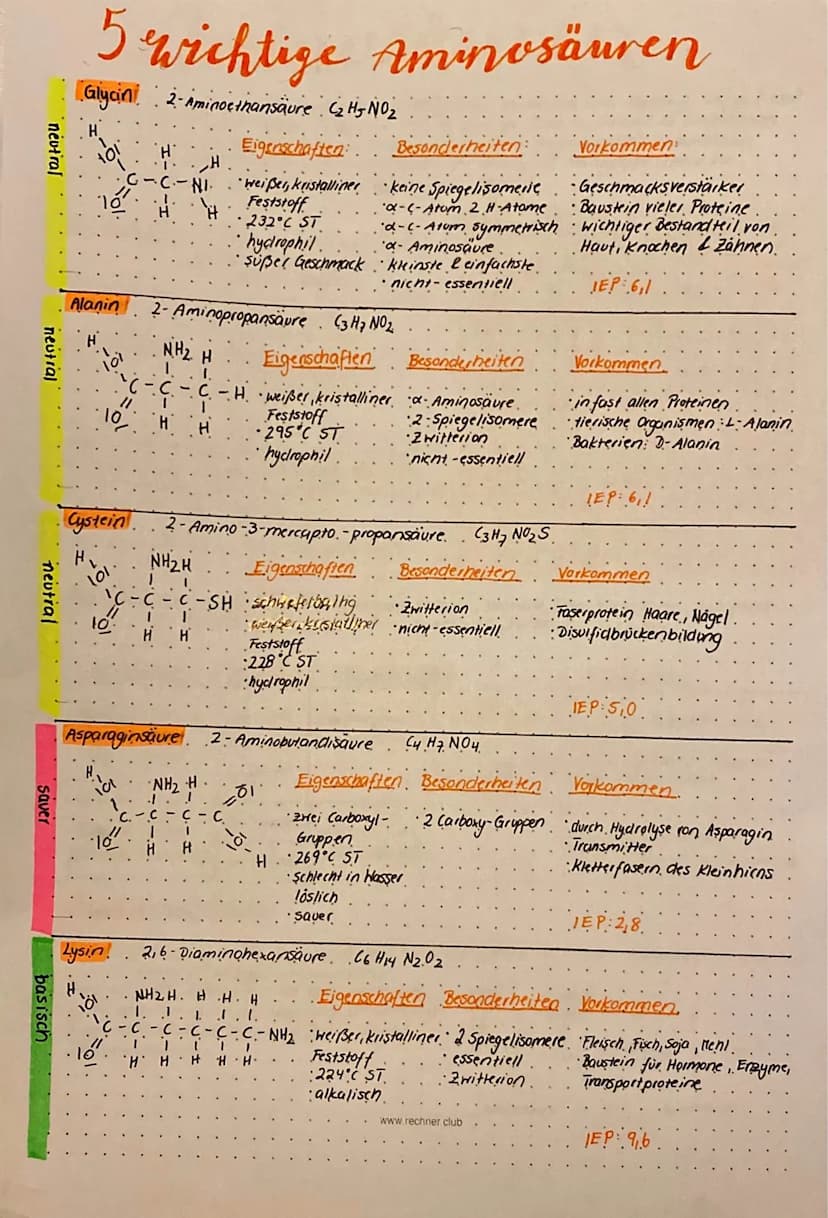 5 wichtige Aminosäuren
Glycin 2-Aminoethansäure C2H5NO2
neutral
H
IOI H H
C-C-NI
IO H H
Eigenschaften:
· weißer, kristalliner
Feststoff
· 232°C ST
· hydrophil
· süßer Geschmack
Besonderheiten:
· keine Spiegelisomerie
· α-C-Atom 2 H-Atome
· α-C-Atom symmetrisch
· α-Aminosäure
· kleinste & einfachste
· nicht-essentiell
Vorkommen:
· Geschmacksverstärker
· Baustein vieler Proteine
· wichtiger Bestandteil von
Haut, Knochen & Zähnen
IEP: 6,1
Alanin 2-Aminopropansäure C3H7NO2
neutral
H
IOI NH2 H
C-C-C-H
IO H H
Eigenschaften
· weißer, kristalliner
Feststoff
· 295°C ST
· hydrophil
Besonderheiten
· α-Aminosäure
· 2-Spiegelisomere
· Zwitterion
· nicht-essentiell
Vorkommen
· in fast allen Proteinen
· tierische Organismen: L-Alanin
Bakterien: D-Alanin
IEP: 6,1
Cystein 2-Amino-3-mercapto-propansäure C3H7NO2S
neutral
H
IOI NH2 H
C-C-C-SH
IO H H
Eigenschaften
· schwefelhaltig
· weißer, kristalliner
Feststoff
· 228°C ST
· hydrophil
Besonderheiten
· Zwitterion
· nicht-essentiell
Vorkommen
· Faserprotein Haare, Nägel
· Disulfidbrückenbildung
IEP: 5,0
Asparaginsäure 2-Aminobutandisäure C4H7NO4
sauer
H
IOI NH2 H OI
C-C-C-C
IO H H O
H
Eigenschaften
· zwei Carboxyl-
Gruppen
· 269°C ST
· schlecht in Wasser
löslich
· sauer
Besonderheiten
· 2 Carboxy-Gruppen
Vorkommen
· durch Hydrolyse von Asparagin
· Transmitter
· Kletterfasern des Kleinhirns
IEP: 2,8
Lysin 2,6-Diaminohexansäure C6H14N2O2
basisch
H
IOI NH2 H H H H
C-C-C-C-C-C-NH2
IO H H H H H
Eigenschaften
· weißer, kristalliner
Feststoff
· 224°C ST
· alkalisch
Besonderheiten
· 2 Spiegelisomere
· essentiell
· Zwitterion
Vorkommen
· Fleisch, Fisch, Soja, Mehl
· Baustein für Hormone, Enzyme,
Transportproteine
IEP: 9,6
www.rechner.club